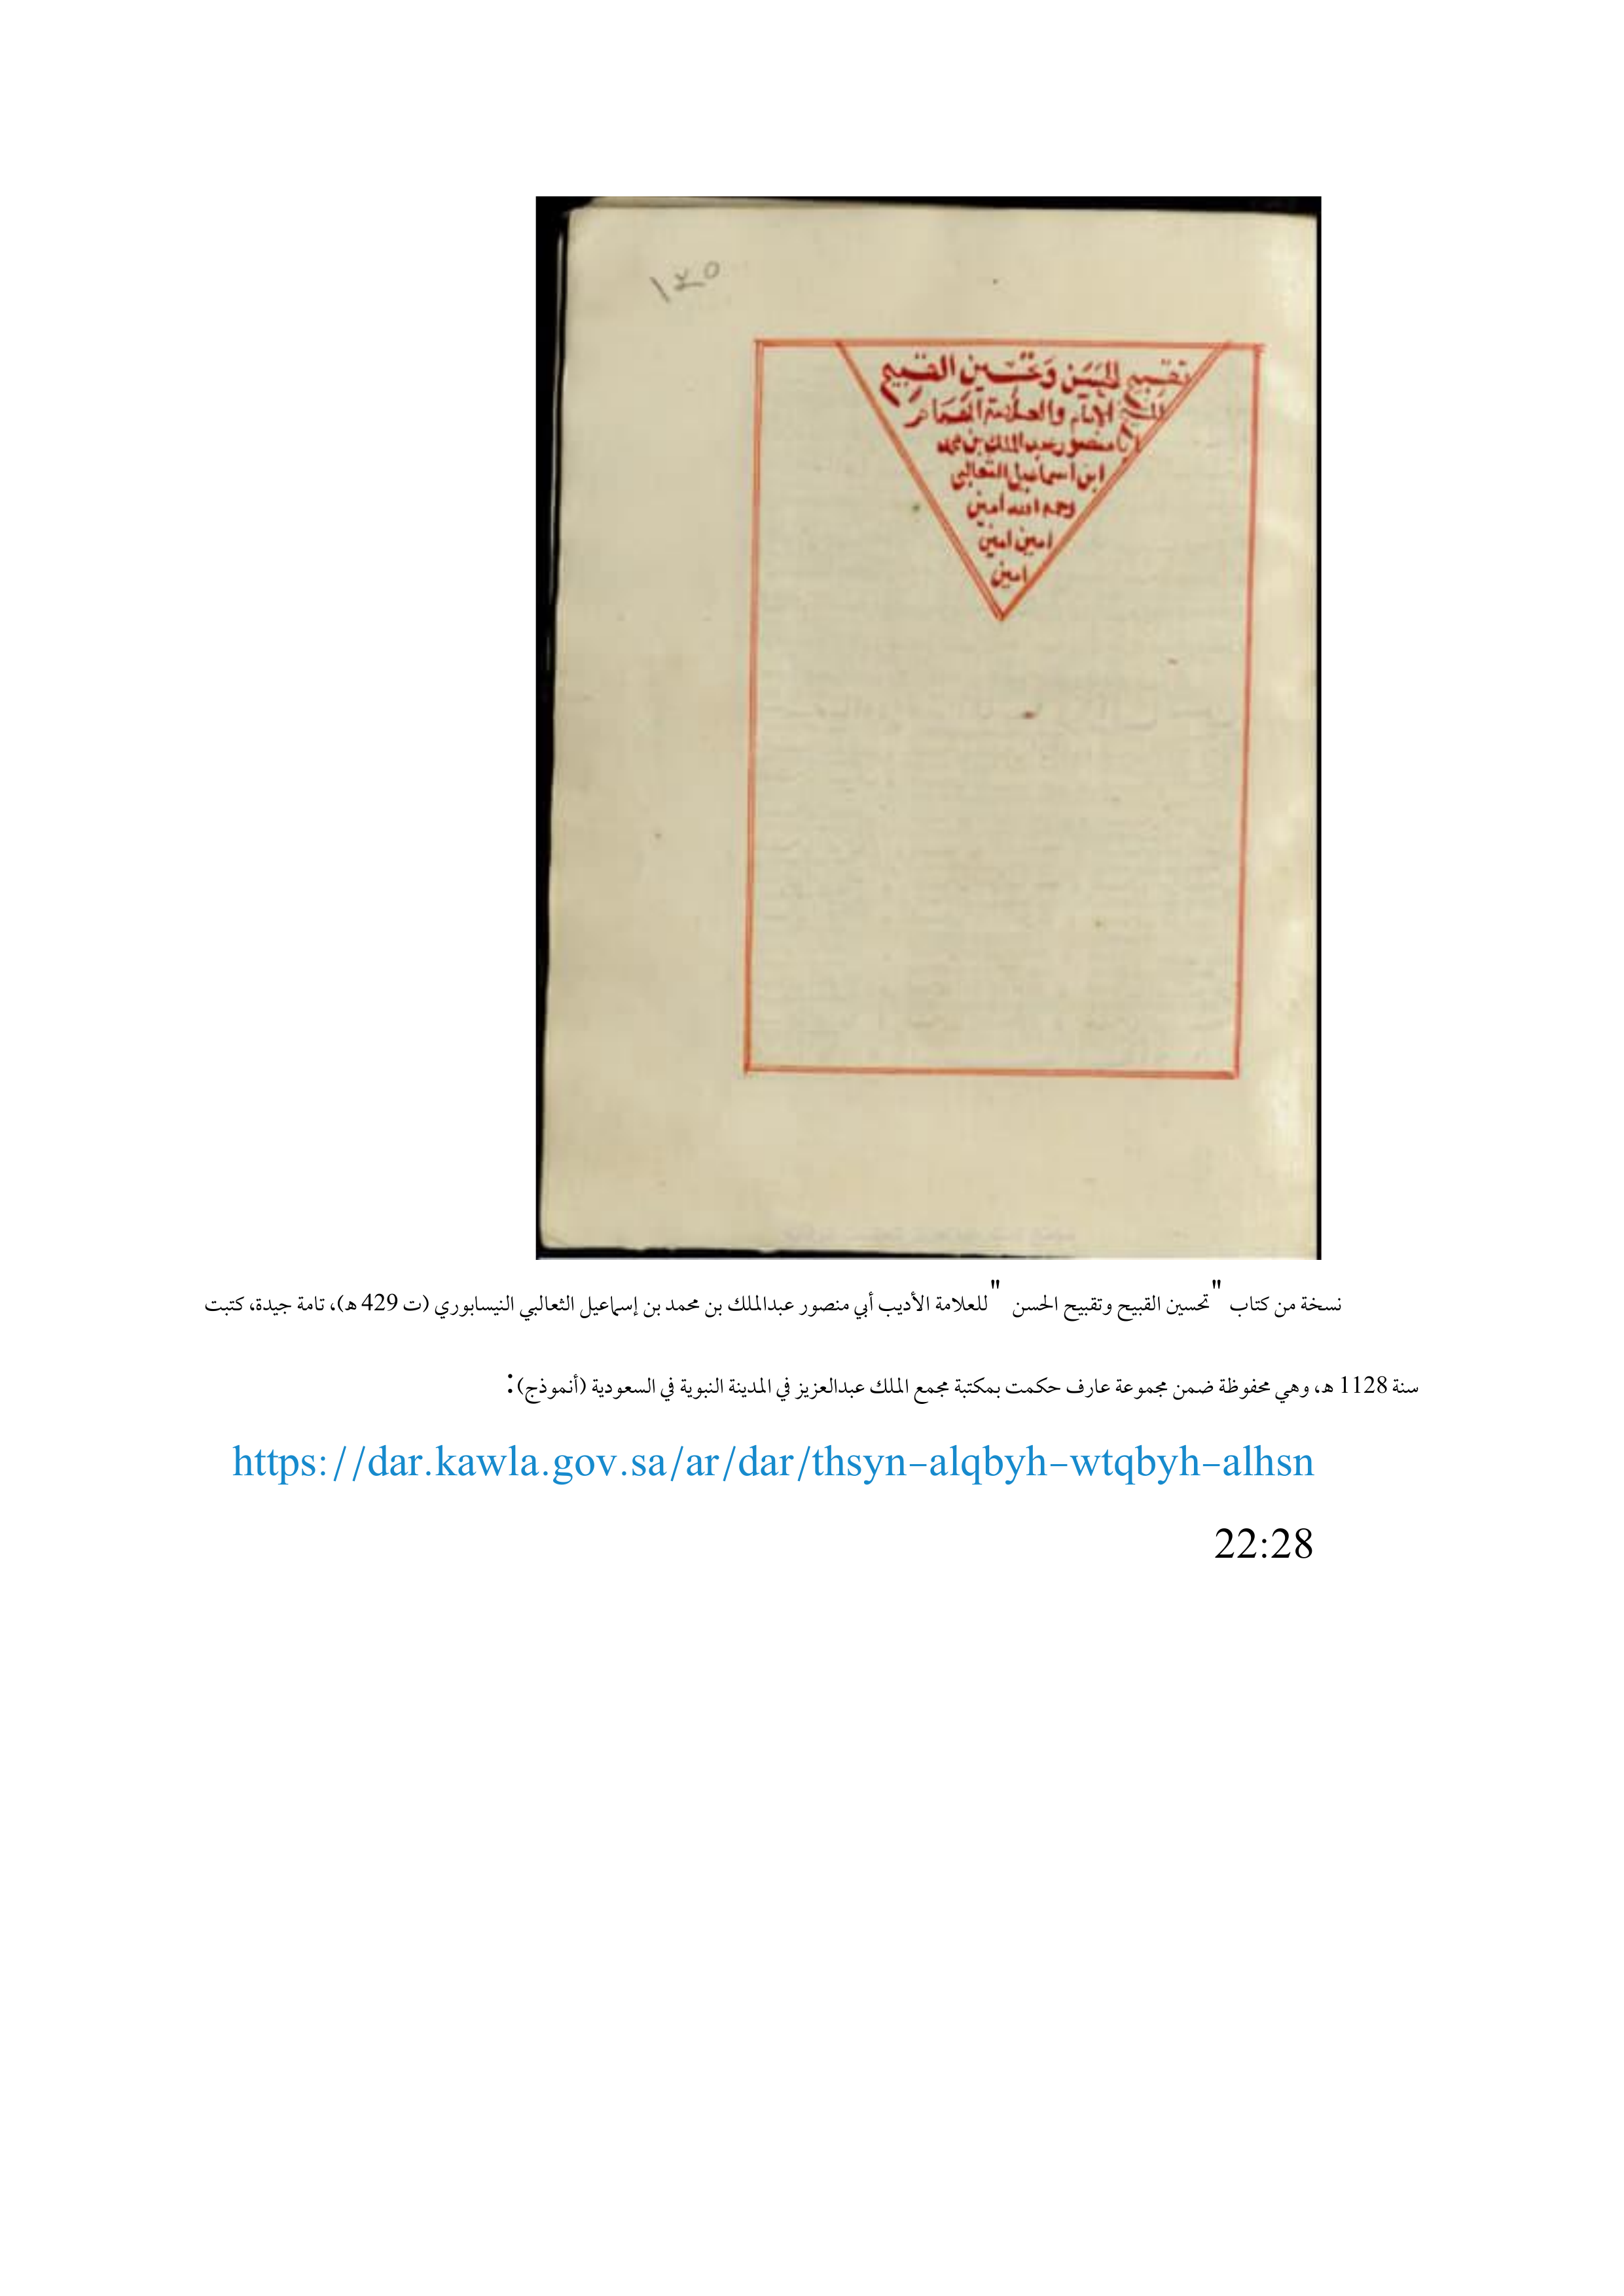 ١٤٥
تقبيح الحسن وتحسين القبيح
الامام والعلامة
ابا منصور عبد الملك بن محمد
ابن اسماعيل الثعالبى
رحمه الله امين
امين امين
امين
نسخة من كتاب "تحسين القبيح وتقبيح الحسن" للعلامة الأديب أبي منصور عبدالملك بن محمد بن إسماعيل الثعالبي النيسابوري (ت 429 هـ)، تامة جيدة، كتبت
سنة 1128 هـ، وهي محفوظة ضمن مجموعة عارف حكمت بمكتبة مجمع الملك عبدالعزيز في المدينة النبوية في السعودية (أنموذج):
https://dar.kawla.gov.sa/ar/dar/thsyn-alqbyh-wtqbyh-alhsn
22:28